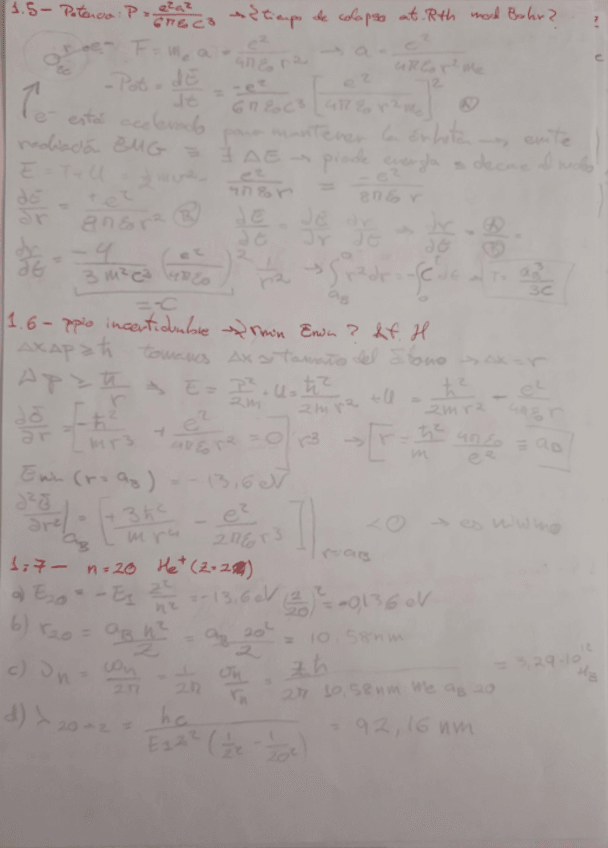 1.5- Potencia: P = e²a²/6πε₀c³ → ¿tiempo de colapso at. Rth mod Bohr?
F = mₑ a = e²/4πε₀r² → a = e²/4πε₀r²mₑ
-Pot = dE/dt = -e²/6πε₀c³ [e²/4πε₀r²mₑ]² Ⓐ
e⁻ está acelerado para mantener la órbita → emite
radiación EMG = ΔE → pierde energía
E = T+U = ½mv² - e²/4πε₀r = -e²/8πε₀r
dE/dr = +e²/8πε₀r² Ⓑ dE/dt = dE/dr dr/dt → dr/dt = Ⓐ/Ⓑ =
dr/dt = -4/3m²c³ (e²/4πε₀)² 1/r² → ∫r²dr = -∫C dt → T = a_B³/3C
= -C
1.6- ppio incertidumbre → ¿rmin Emin? át. H
ΔxΔp ≥ ħ tomamos Δx ≃ tamaño del átomo → Δx = r
Δp ≥ ħ/r → E = p²/2m + U = ħ²/2mr² + U = ħ²/2mr² - e²/4πε₀r
dE/dr = [-ħ²/mr³ + e²/4πε₀r² = 0] r³ → [r = ħ²/m 4πε₀/e² = a_B]
Emin (r = a_B) = -13,6 eV
∂²E/∂r²|a_B = [+3ħ²/mr⁴ - e²/2πε₀r³]|r=a_B <0 → es mínimo
1.7- n=20 He⁺ (Z=2)
a) E₂₀ = -E₁ Z²/n² = -13.6 eV (2/20)² = -0,136 eV
b) r₂₀ = a_B n²/2 = a_B 20²/2 = 10.58nm
c) νn = ωn/2π = 1/2π vn/rn = zħ/2π 10.58nm me a_B 20 = 3,29·10¹² Hz
d) λ₂₀→₂ = hc/E₁2²(1/2² - 1/20²) = 92,16 nm